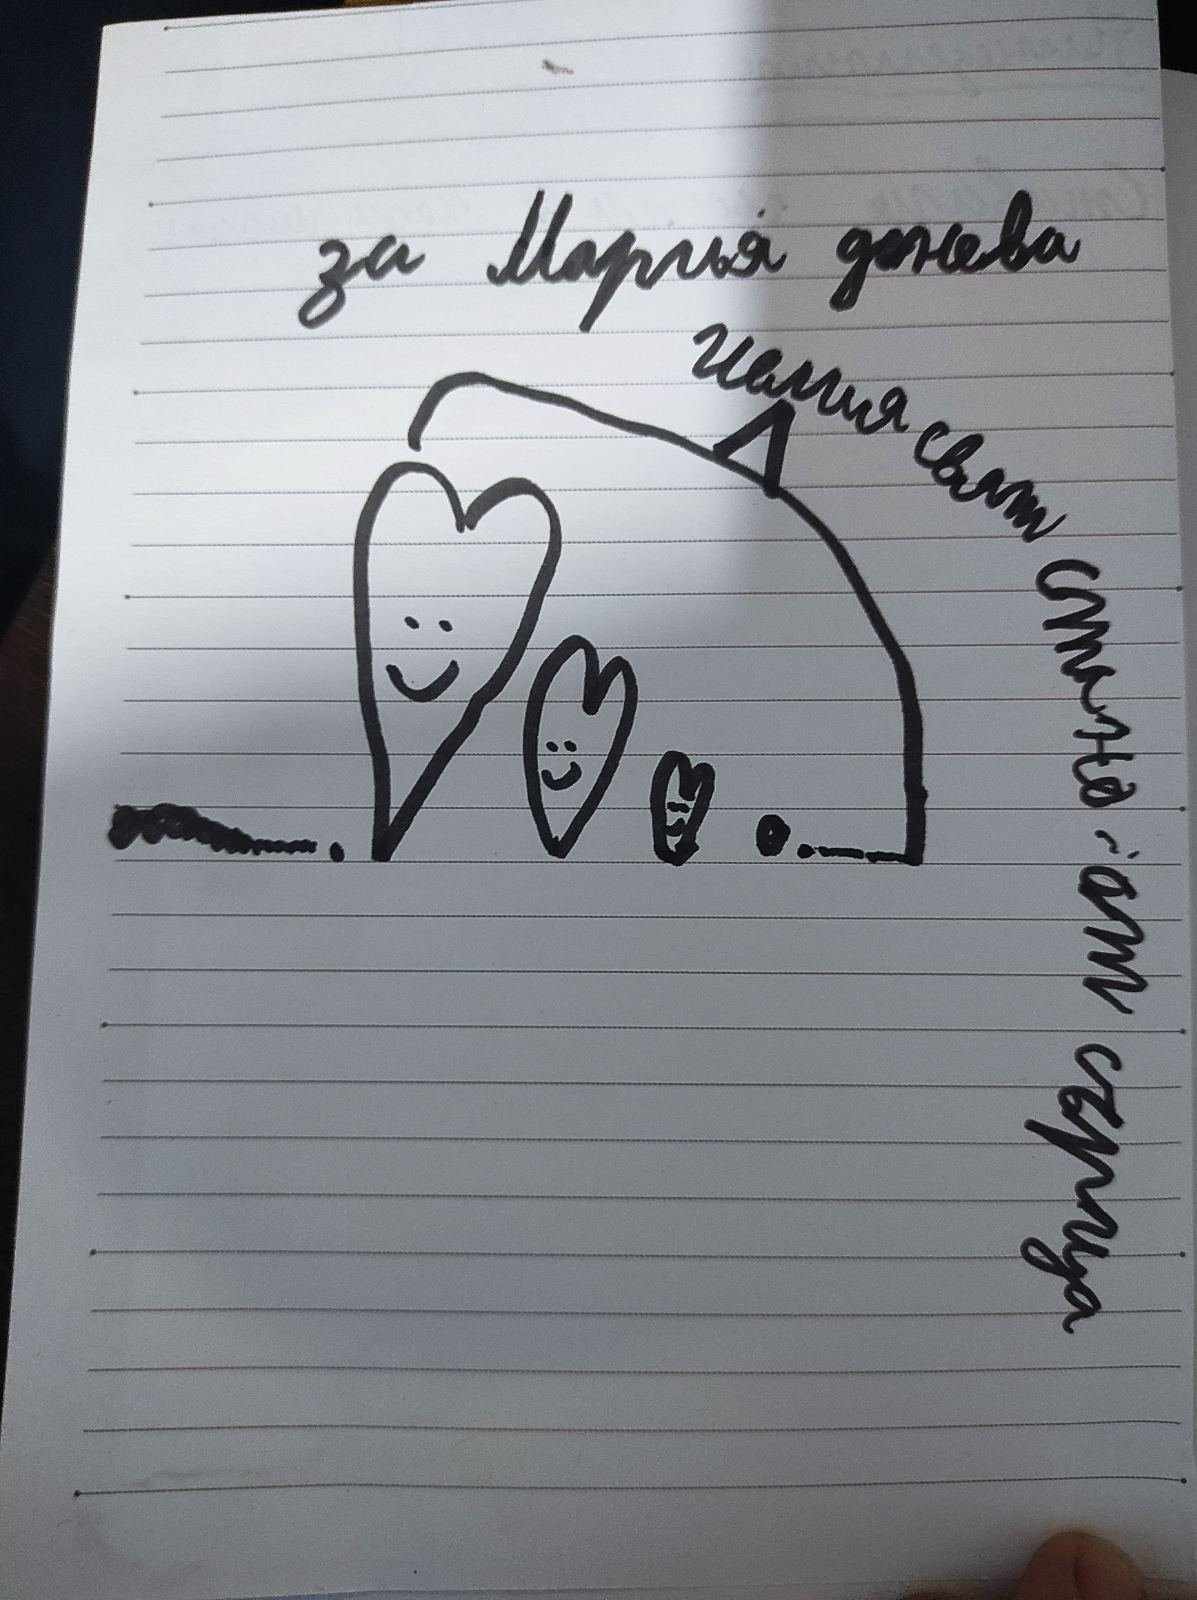 за Мария донева
целия свят стана от сърца